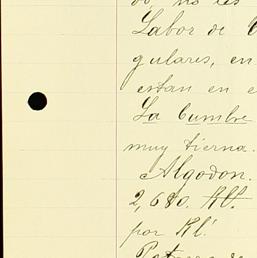 no les
Labor de
gulares, en
estan en e
La Cumbre
muy tierna.
Algodon.
2,680. Kll.
por Kl.